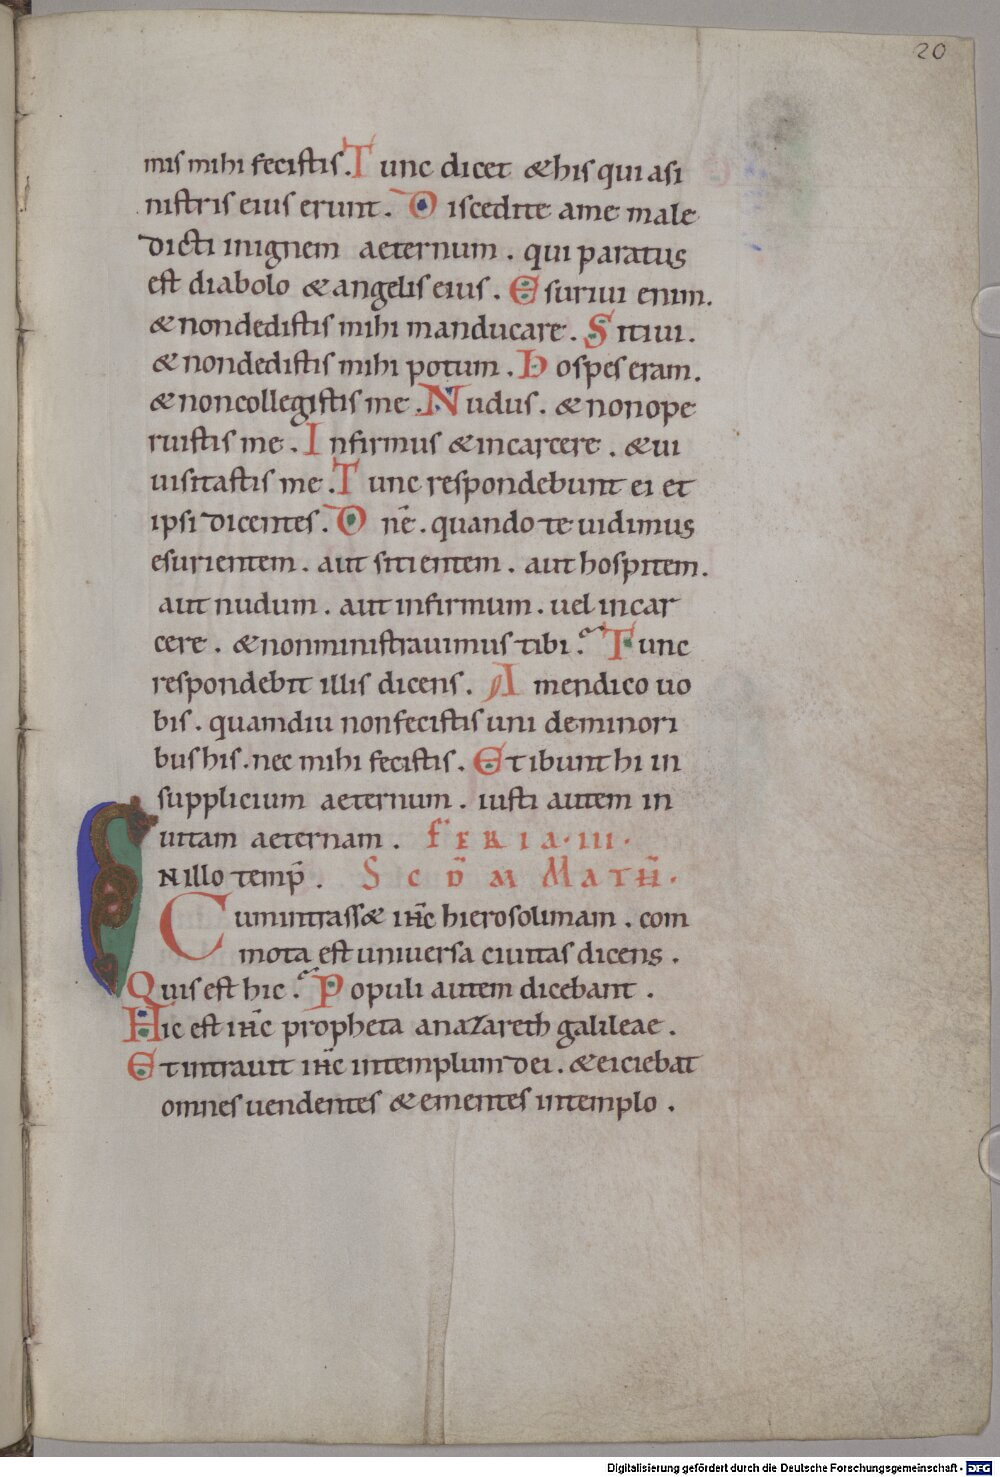 20
mis mihi fecistis. Tunc dicet & his qui asi
nistris eius erunt. Discedite ame male
dicti inignem aeternum. qui paratus
est diabolo & angelis eius. Esuriui enim.
& nondedistis mihi manducare. Sitiui.
& nondedistis mihi potum. Hospes eram.
& noncollegistis me. Nudus. & nonope
ruistis me. Infirmus & incarcere. & ui
uisitastis me. Tunc respondebunt ei et
ipsi dicentes. Dnē. quando te uidimus
esurientem. aut sitientem. aut hospitem.
aut nudum. aut infirmum. uel incar
cere. & nonministrauimus tibi? Tunc
respondebit illis dicens. Amendico uo
bis. quamdiu nonfecistis uni deminori
bus his. nec mihi fecistis. Et ibunt hi in
supplicium aeternum. iusti autem in
uitam aeternam. FERIA·III·
INillo temp̄. SCDM̄ MATH̄·
Cumintrass& ih̄c hierosolimam. com
mota est uniuersa ciuitas dicens.
Quis est hic? Populi autem dicebant.
Hic est ih̄c propheta anazareth galileae.
Et intrauit ih̄c intemplum dei. & eiciebat
omnes uendentes & ementes intemplo.
Digitalisierung gefördert durch die Deutsche Forschungsgemeinschaft - DFG